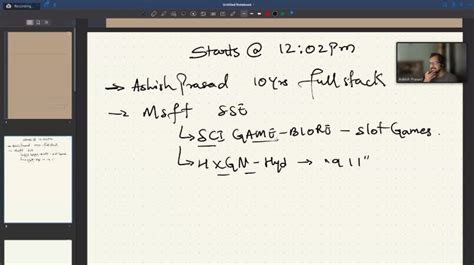 Untitled Notebook
Starts @ 12:02Pm
→ Ashish Prasad 10Yrs fullstack
→ Msft SSE
↳ SCI GAME-BLORE - Slot Games.
↳ HXGN-Hyd → "911"
Ashish Prasad